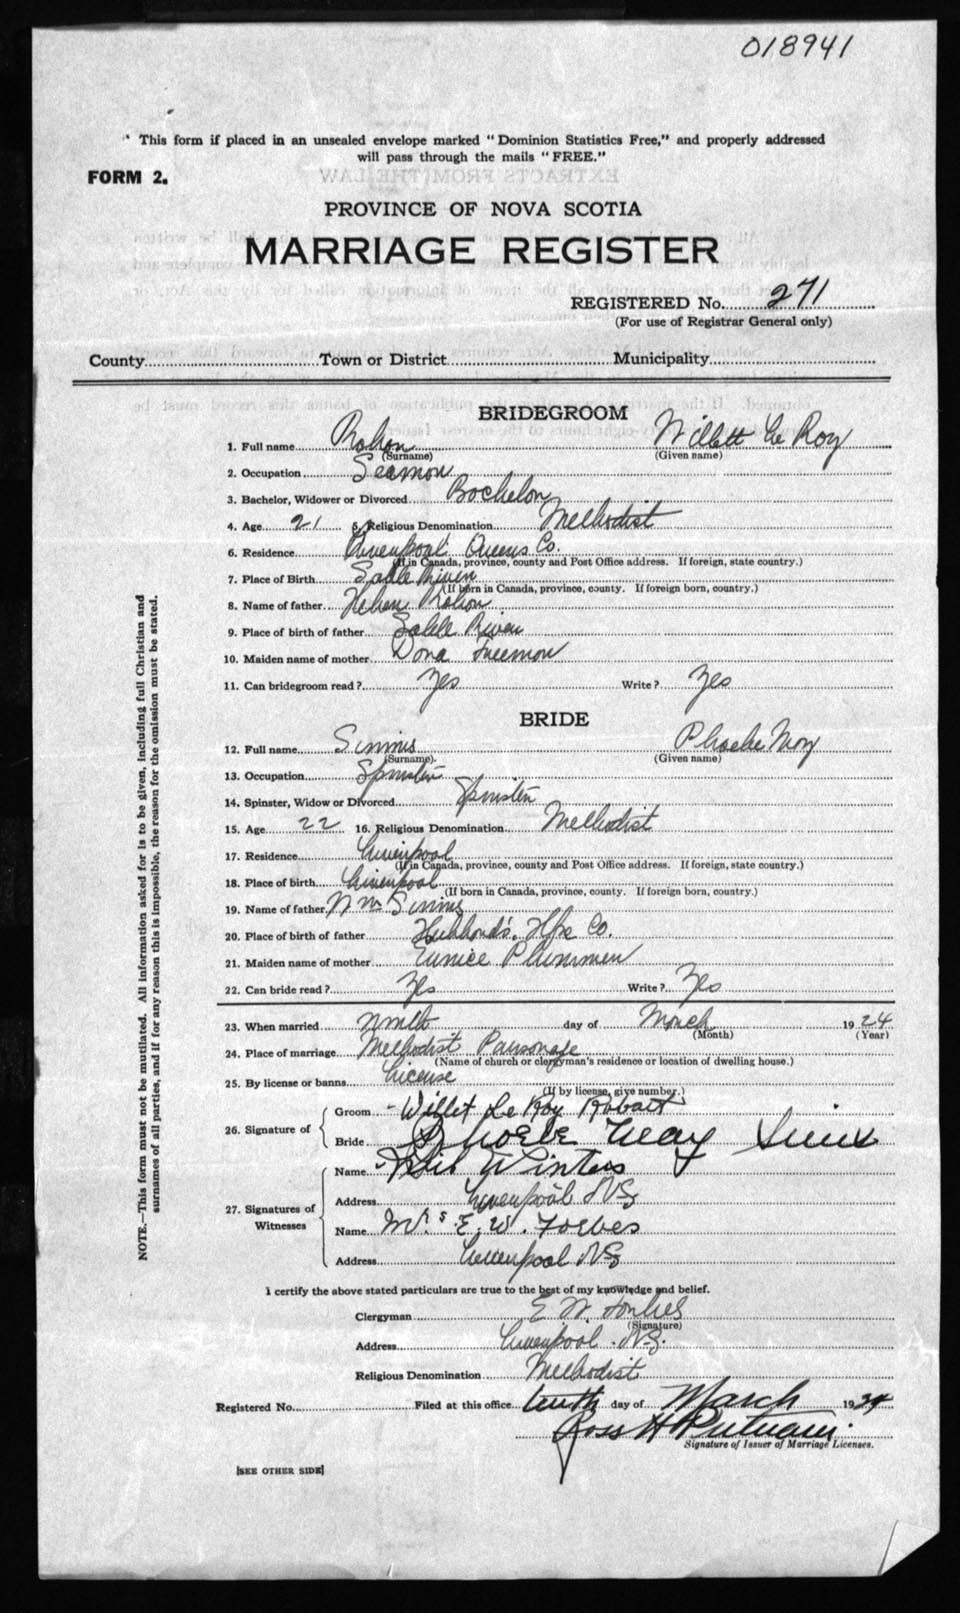 018941
" This form if placed in an unsealed envelope marked "Dominion Statistics Free," and properly addressed
will pass through the mails "FREE."
FORM 2.
PROVINCE OF NOVA SCOTIA
MARRIAGE REGISTER
REGISTERED No. 271
(For use of Registrar General only)
County Town or District Municipality
BRIDEGROOM
1. Full name Willett Le Roy
(Surname) (Given name)
2. Occupation Seaman
3. Bachelor, Widower or Divorced Bachelor
4. Age 21 5. Religious Denomination Methodist
6. Residence Liverpool Queens Co.
(If in Canada, province, county and Post Office address. If foreign, state country.)
7. Place of Birth Sable River
(If born in Canada, province, county. If foreign born, country.)
8. Name of father
9. Place of birth of father Sable River
10. Maiden name of mother Dora Freeman
11. Can bridegroom read? Yes Write? Yes
BRIDE
12. Full name Phoebe May
(Surname). (Given name)
13. Occupation Spinster
14. Spinster, Widow or Divorced Spinster
15. Age 22 16. Religious Denomination Methodist
17. Residence Liverpool
(If in Canada, province, county and Post Office address. If foreign, state country.)
18. Place of birth Liverpool
(If born in Canada, province, county. If foreign born, country.)
19. Name of father Wm
20. Place of birth of father Hubbards. Hfx Co.
21. Maiden name of mother Eunice Plummer
22. Can bride read? Yes Write? Yes
23. When married Ninth day of March 1924
(Month) (Year)
24. Place of marriage Methodist Parsonage
(Name of church or clergyman's residence or location of dwelling house.)
25. By license or banns License
(If by license, give number.)
26. Signature of Groom Willet Le Roy Robart
Bride Phoebe May
27. Signatures of Witnesses Name Winters
Address Liverpool NS
Name Mrs E. W. Forbes
Address Liverpool NS
I certify the above stated particulars are true to the best of my knowledge and belief.
Clergyman E W. Forbes
(Signature)
Address Liverpool. N.S.
Religious Denomination Methodist
Registered No. Filed at this office tenth day of March 1924
Ross H Putnam.
Signature of Issuer of Marriage Licenses.
[SEE OTHER SIDE]
NOTE.—This form must not be mutilated. All information asked for is to be given, including full Christian and
surnames of all parties, and if for any reason this is impossible, the reason for the omission must be stated.